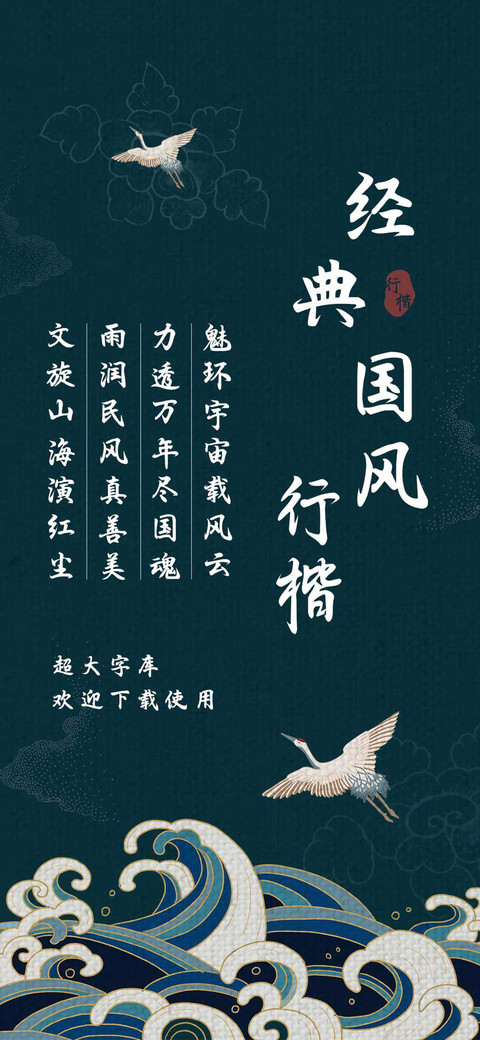 经典国风
行楷
行楷
魅环宇宙载风云
力透万年尽国魂
雨润民风真善美
文旋山海演红尘
超大字库
欢迎下载使用